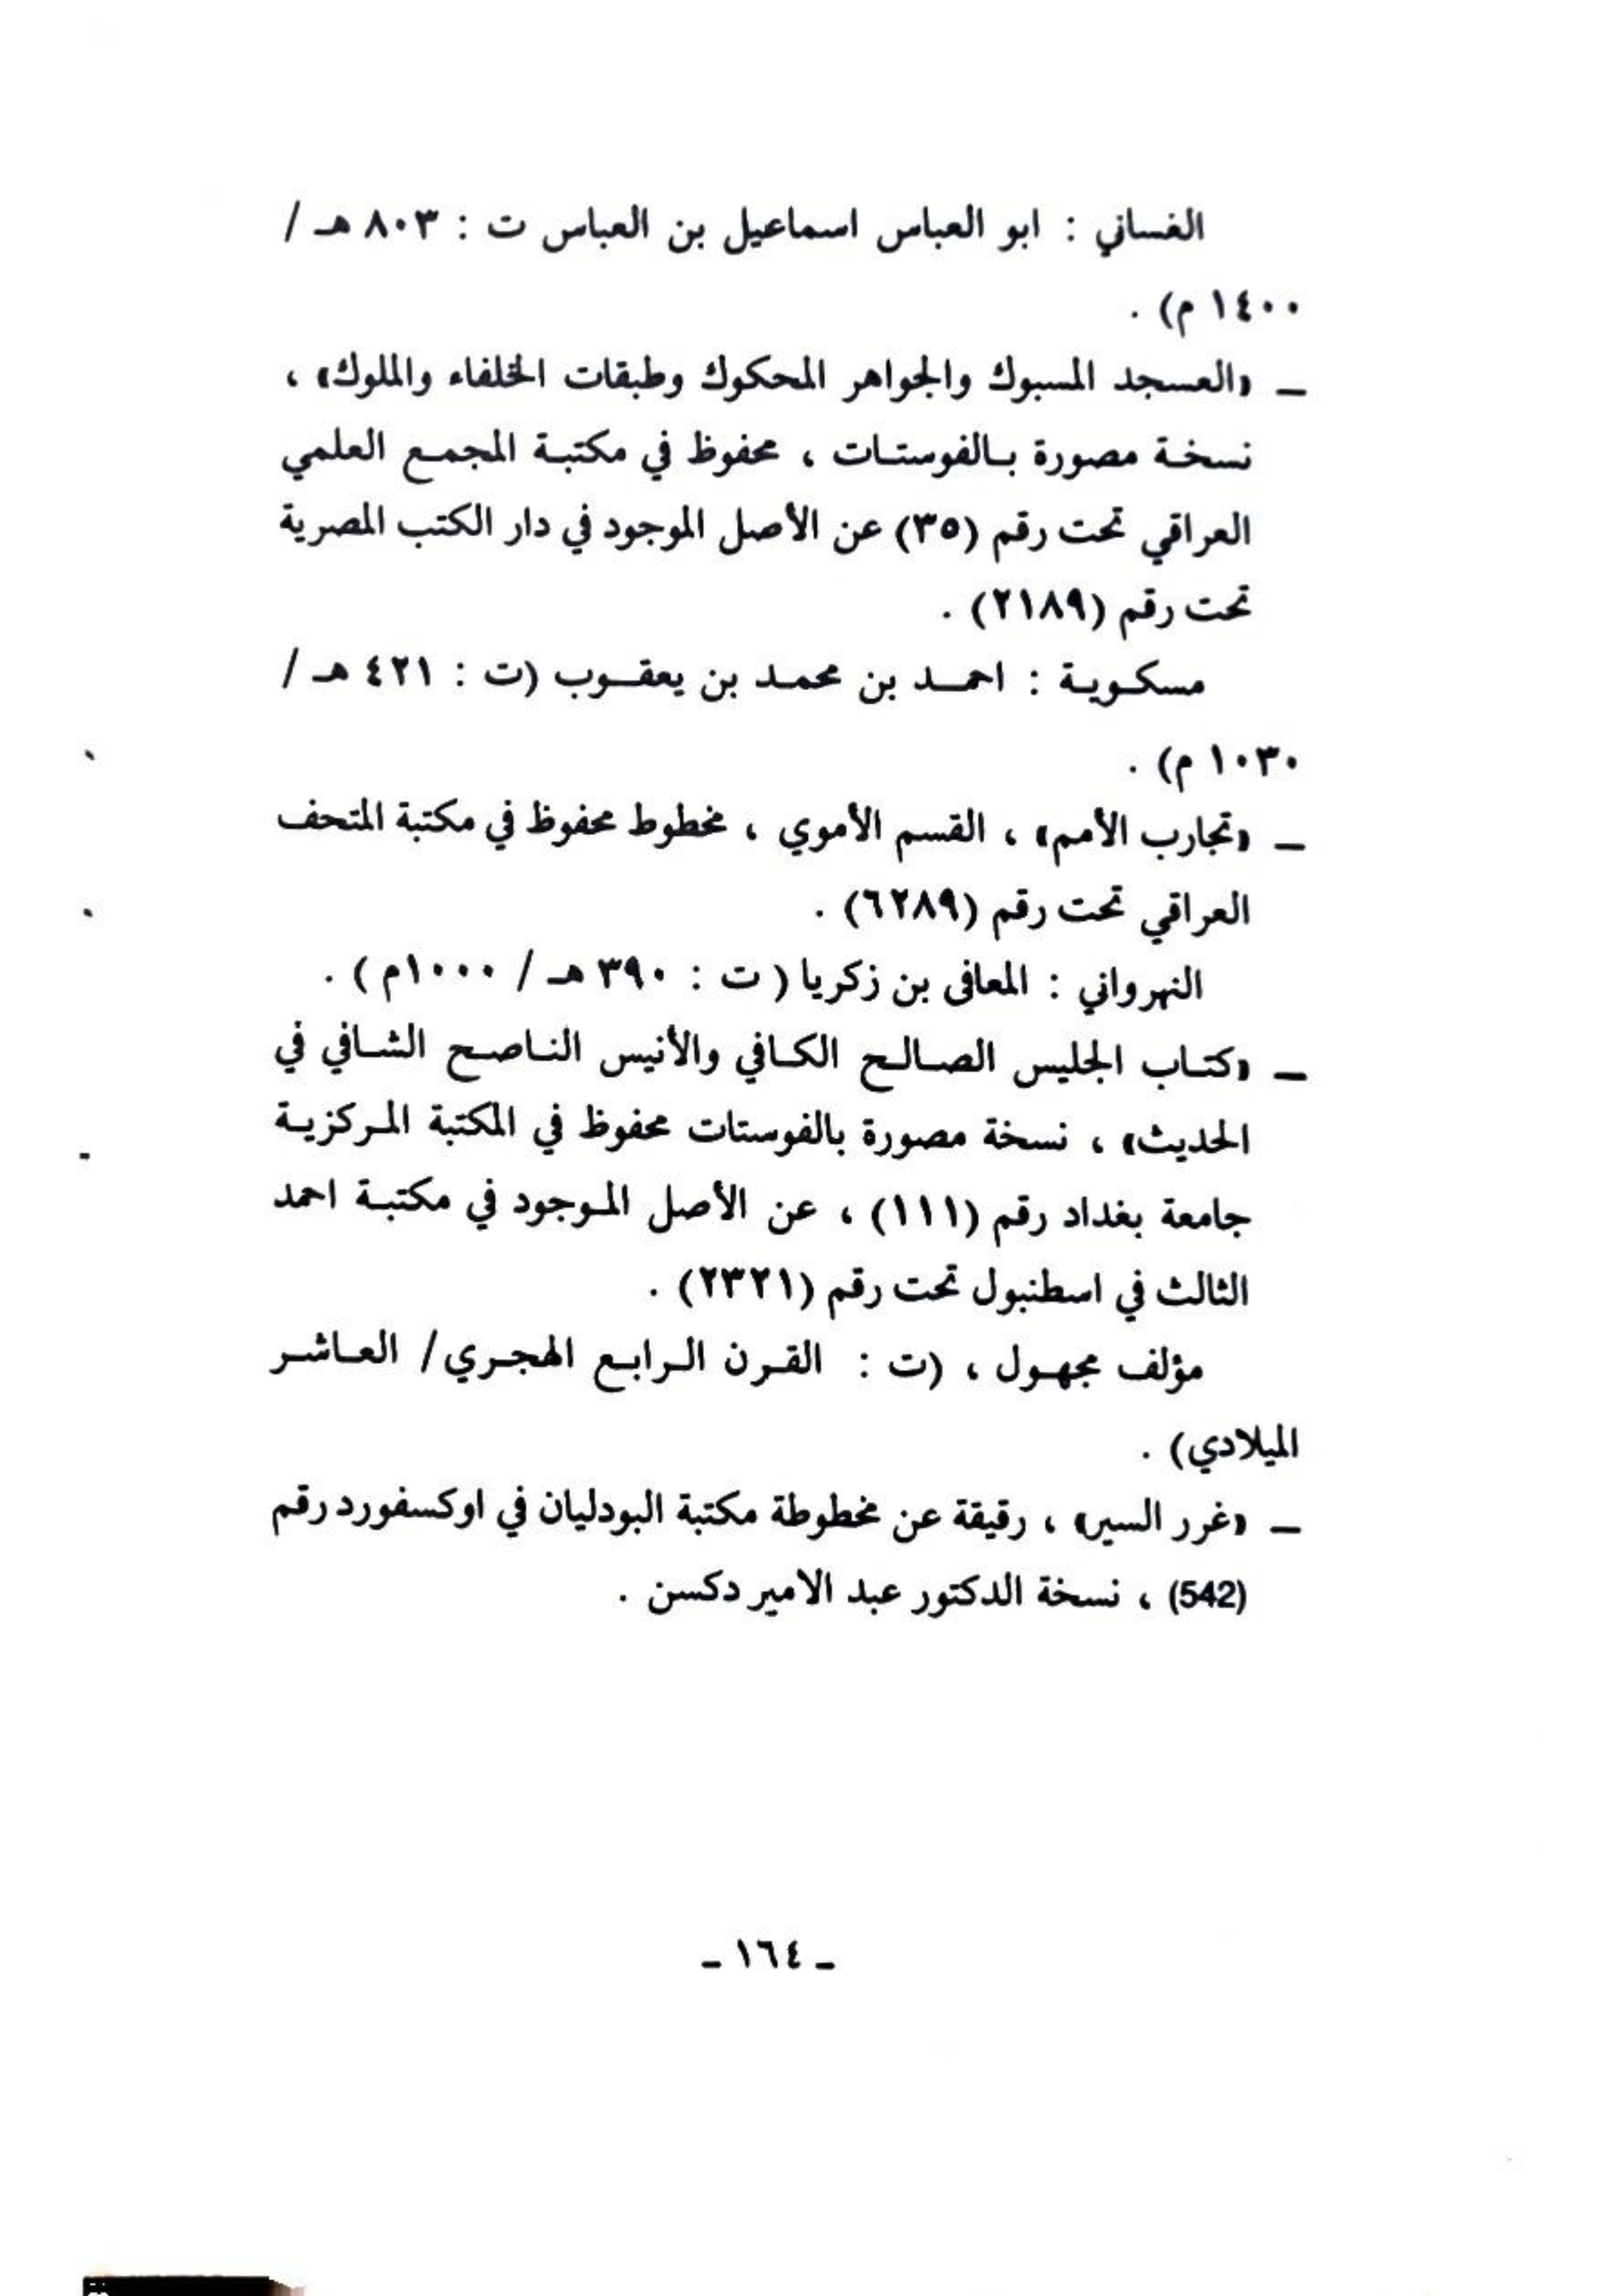 الغساني : ابو العباس اسماعيل بن العباس ت : ٨٠٣ هـ /
١٤٠٠ م) .
ـ «العسجد المسبوك والجواهر المحكوك وطبقات الخلفاء والملوك» ،
نسخة مصورة بالفوستات ، محفوظ في مكتبة المجمع العلمي
العراقي تحت رقم (٣٥) عن الأصل الموجود في دار الكتب المصرية
تحت رقم (٢١٨٩) .
مسكوية : احمد بن محمد بن يعقوب (ت : ٤٢١ هـ /
١٠٣٠ م) .
ـ «تجارب الأمم» ، القسم الأموي ، مخطوط محفوظ في مكتبة المتحف
العراقي تحت رقم (٦٢٨٩) .
النهرواني : المعافى بن زكريا ( ت : ٣٩٠ هـ / ١٠٠٠م ) .
ـ «كتاب الجليس الصالح الكافي والأنيس الناصح الشافي في
الحديث» ، نسخة مصورة بالفوستات محفوظ في المكتبة المركزية
جامعة بغداد رقم (١١١) ، عن الأصل الموجود في مكتبة احمد
الثالث في اسطنبول تحت رقم (٢٣٢١) .
مؤلف مجهول ، (ت : القرن الرابع الهجري/ العاشر
الميلادي) .
ـ «غرر السير» ، رقيقة عن مخطوطة مكتبة البودليان في اوكسفورد رقم
(542) ، نسخة الدكتور عبد الامير دكسن .
ـ ١٦٤ ـ